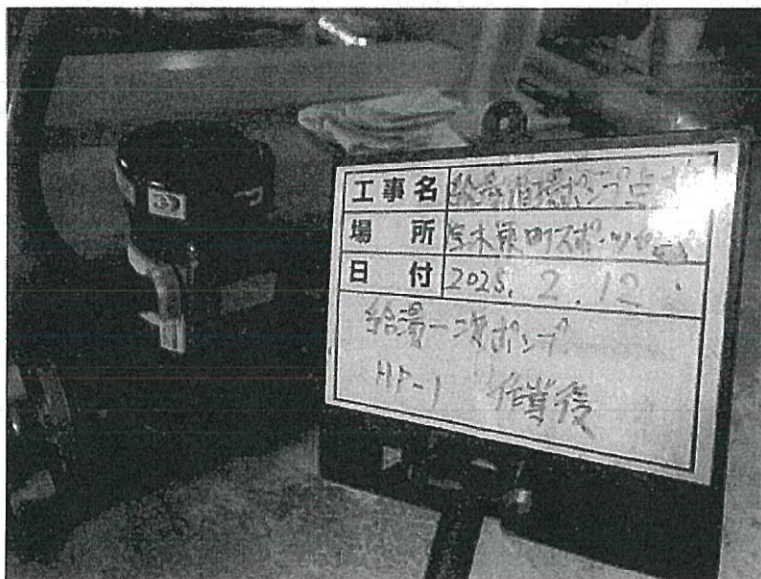 工事名 給湯循環ポンプ点
場所 厚木東町スポーツセンター
日付 2025. 2. 12
給湯一次ポンプ
HP-1 作業後